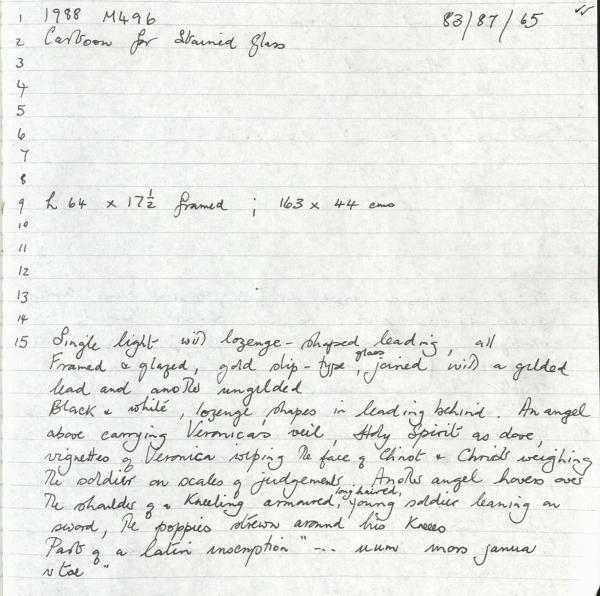 1 1988 M496 83/87/65
2 Cartoon for Stained Glass
3
4
5
6
7
8
9 h 64 x 17½ framed ; 163 x 44 cms
10
11
12
13
14
15 Single light with lozenge-shaped leading, all
Framed & glazed, gold slip-type glass, joined with a gilded
lead and another ungilded
Black & white, lozenge shapes in leading behind. An angel
above carrying Veronica's veil, Holy Spirit as dove,
vignettes of Veronica wiping the face of Christ & Christ weighing
the soldier on scales of judgement. Another angel hovers over
the shoulder of a kneeling armoured, long haired, young soldier leaning on
sword, the poppies strewn around his knees
Part of a latin inscription "--- uum mors janua
vitae"